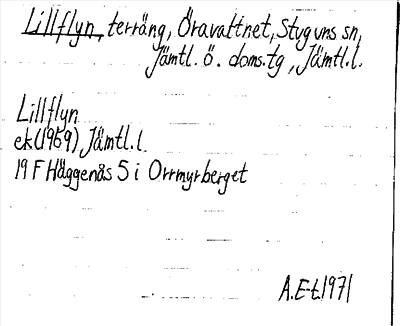 Lillflyn, terräng, Öravattnet, Stuguns sn,
Jämtl. ö. doms.tg, Jämtl.l.
Lillflyn
ek(1959) Jämtl.l.
19 F Häggenås 5 i Orrmyrberget
A.E-t.1971